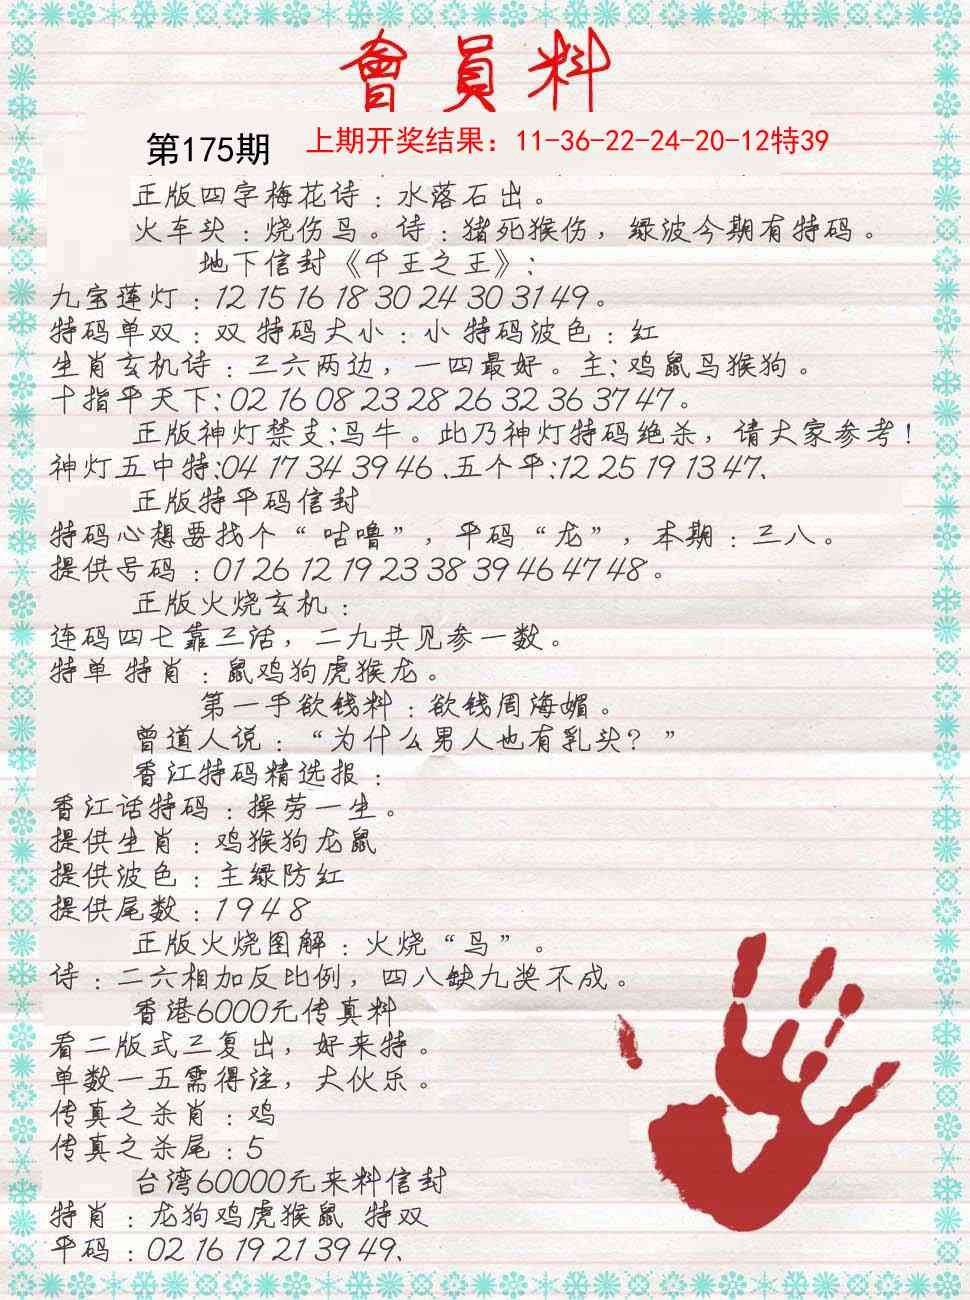 會員料
第175期 上期开奖结果：11-36-22-24-20-12特39
正版四字梅花诗：水落石出。
火车头：烧伤鸟。诗：猪死猴伤，绿波今期有特码。
地下信封《千王之王》：
九宝莲灯：12 15 16 18 30 24 30 31 49。
特码单双：双 特码大小：小 特码波色：红
生肖玄机诗：三六两边，一四最好。主：鸡鼠马猴狗。
十指平天下：02 16 08 23 28 26 32 36 37 47。
正版神灯禁支：鸟牛。此乃神灯特码绝杀，请大家参考！
神灯五中特：04 17 34 39 46、五个平：12 25 19 13 47、
正版特平码信封
特码心想要找个“咕噜”，平码“龙”，本期：三八。
提供号码：01 26 12 19 23 38 39 46 47 48。
正版火烧玄机：
连码四七靠三话，二九共见参一数。
特单 特肖：鼠鸡狗虎猴龙。
第一手欲钱料：欲钱周海媚。
曾道人说：“为什么男人也有乳头？”
香江特码精选报：
香江话特码：操劳一生。
提供生肖：鸡猴狗龙鼠
提供波色：主绿防红
提供尾数：1 9 4 8
正版火烧图解：火烧“鸟”。
诗：二六相加反比例，四八缺九奖不成。
香港6000元传真料
看二版式三复出，好来特。
单数一五需得注，大伙乐。
传真之杀肖：鸡
传真之杀尾：5
台湾60000元来料信封
特肖：龙狗鸡虎猴鼠 特双
平码：02 16 19 21 39 49、